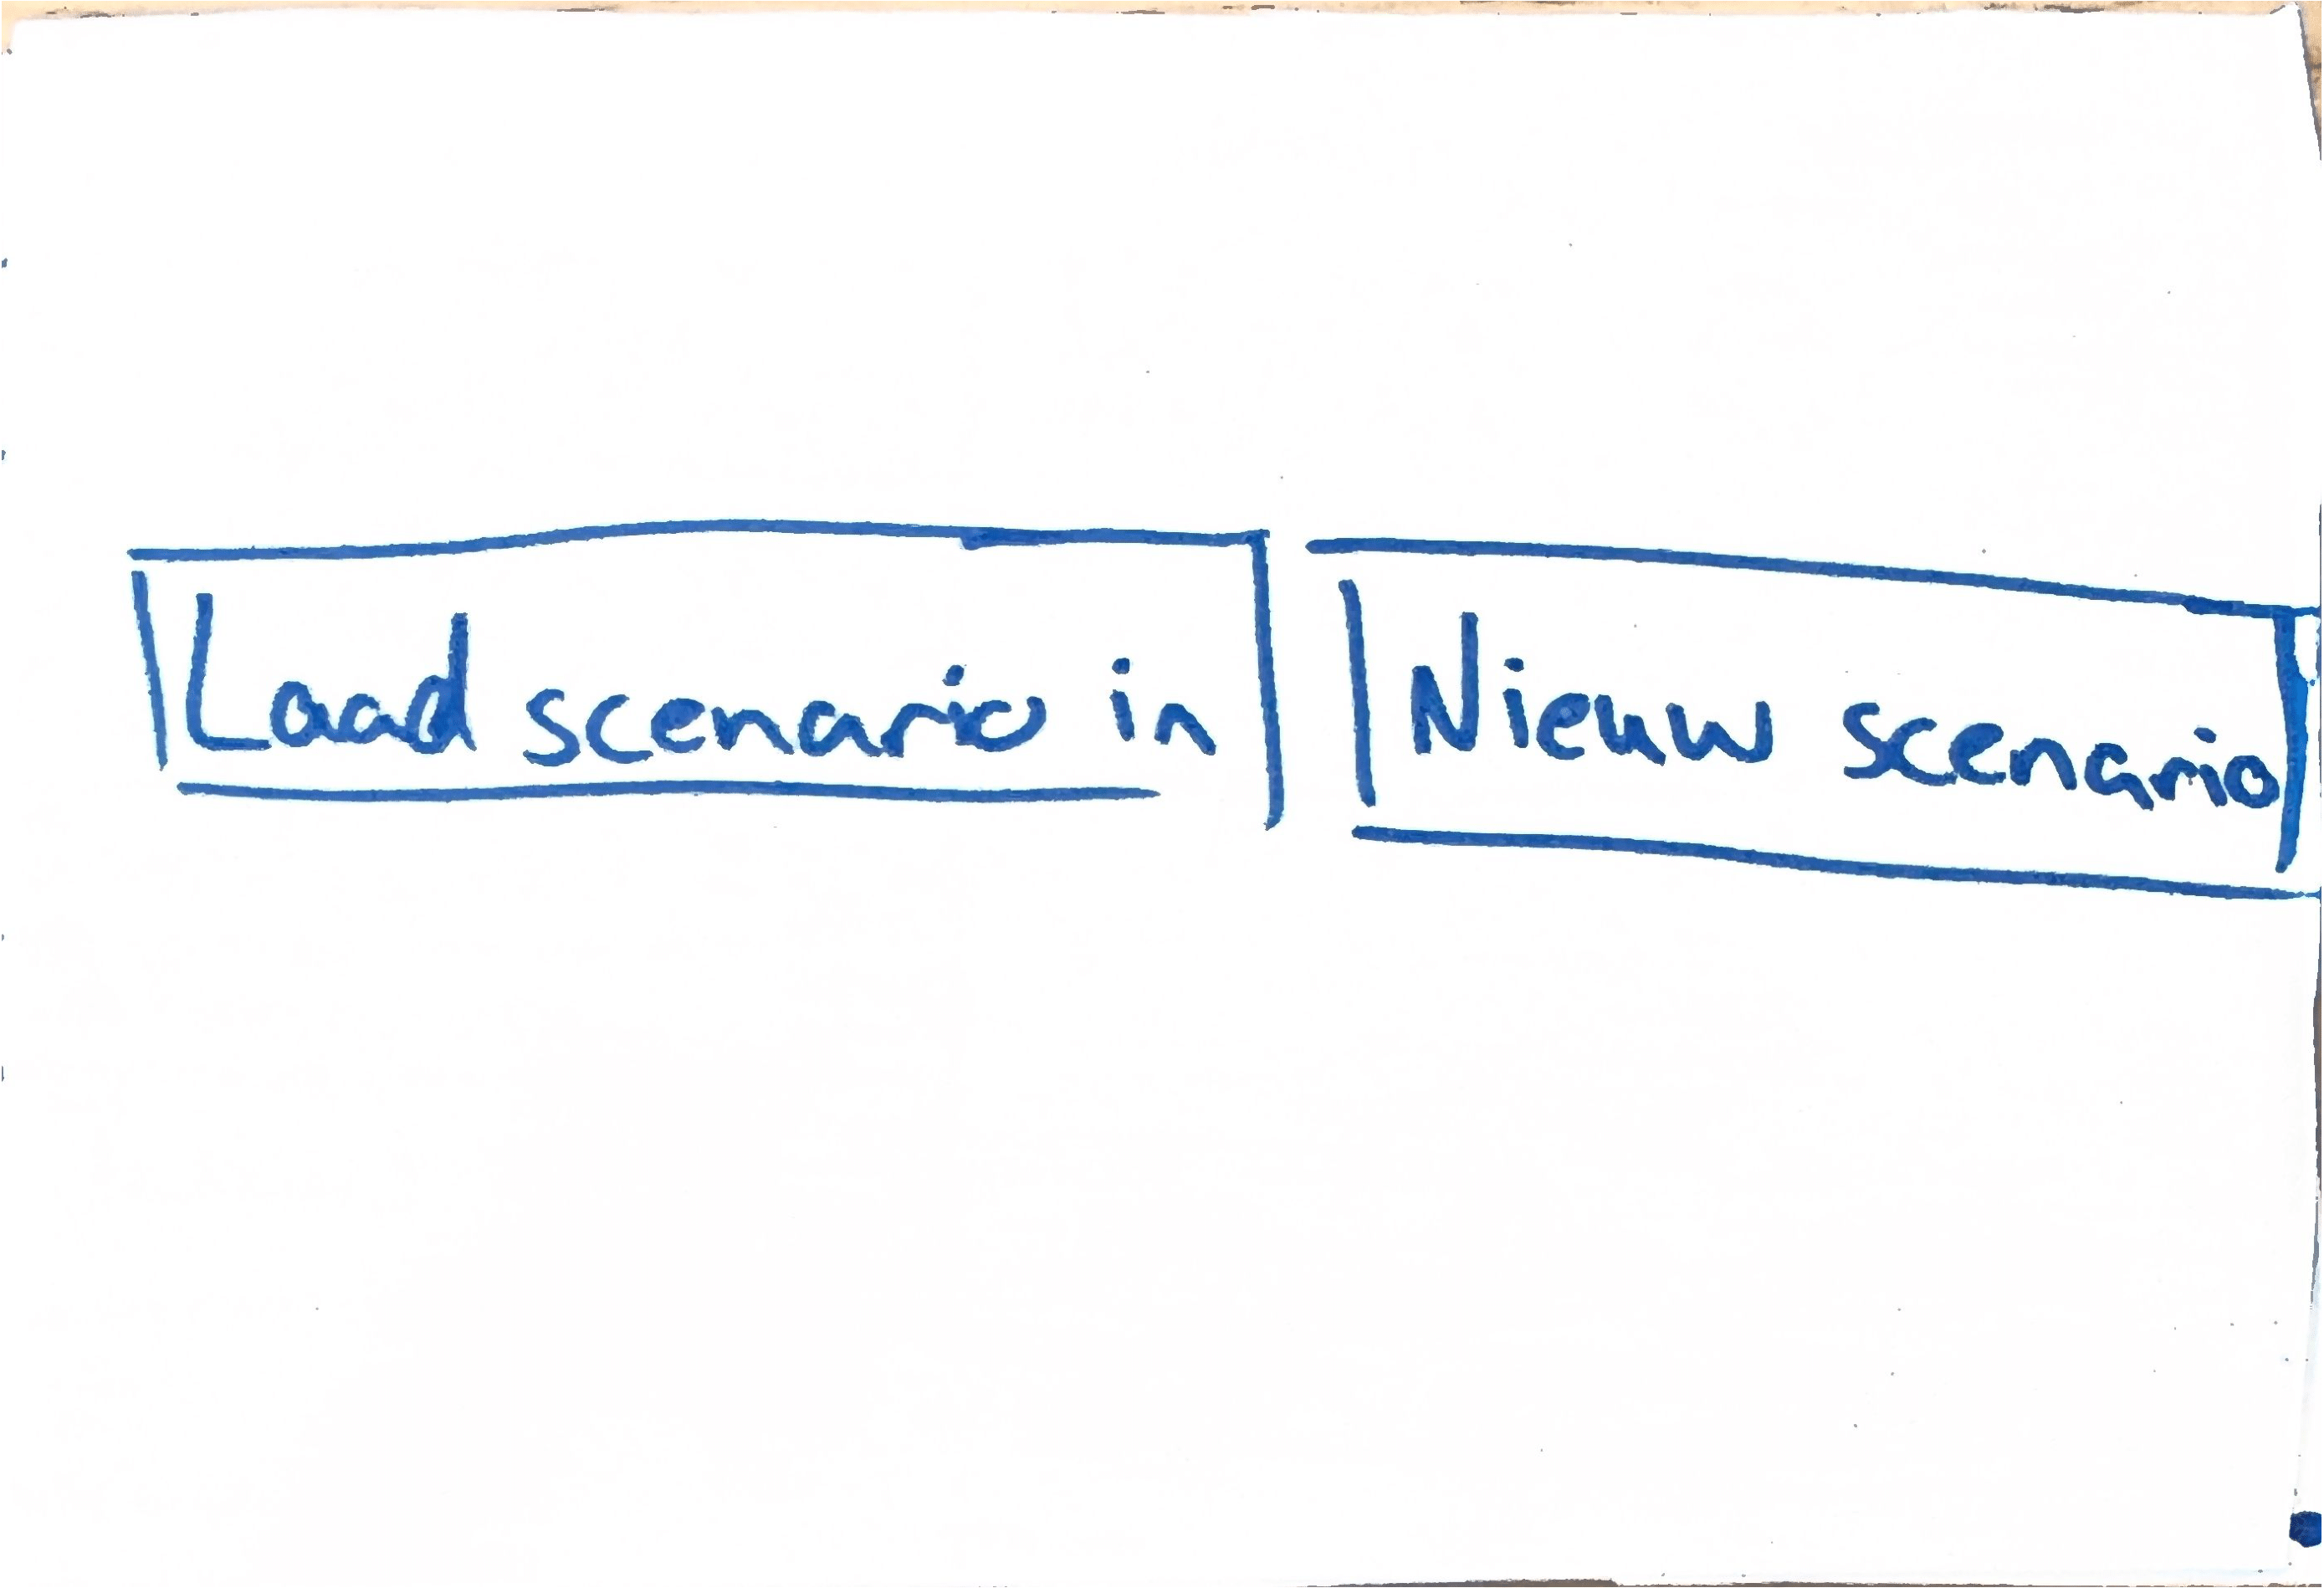 Laad scenario in
Nieuw scenario